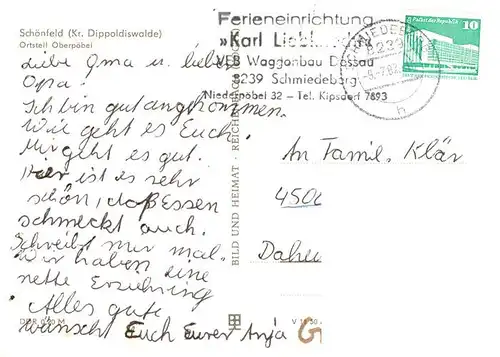 Schönfeld (Kr. Dippoldiswalde)
Ortsteil Oberpöbel
Liebe Oma u. lieber
Opa!
Ich bin gut angekommen.
Wie geht es Euch?
Mir geht es gut.
Hier ist es sehr
schön, daß Essen
schmeckt auch.
Schreibt mir mal.
Wir haben eine
nette Erziehring
Alles gute
wünscht Euch Eurer Anja
DDR 0,20 M
BILD UND HEIMAT · REICHENBACH
V 11 50
Ferieneinrichtung
»Karl
VEB Waggonbau Dessau
8239 Schmiedeberg
Niederpöbel 32 – Tel. Kipsdorf 7893
8239
h
Palast der Republik
10
An Famil. Klär
4500